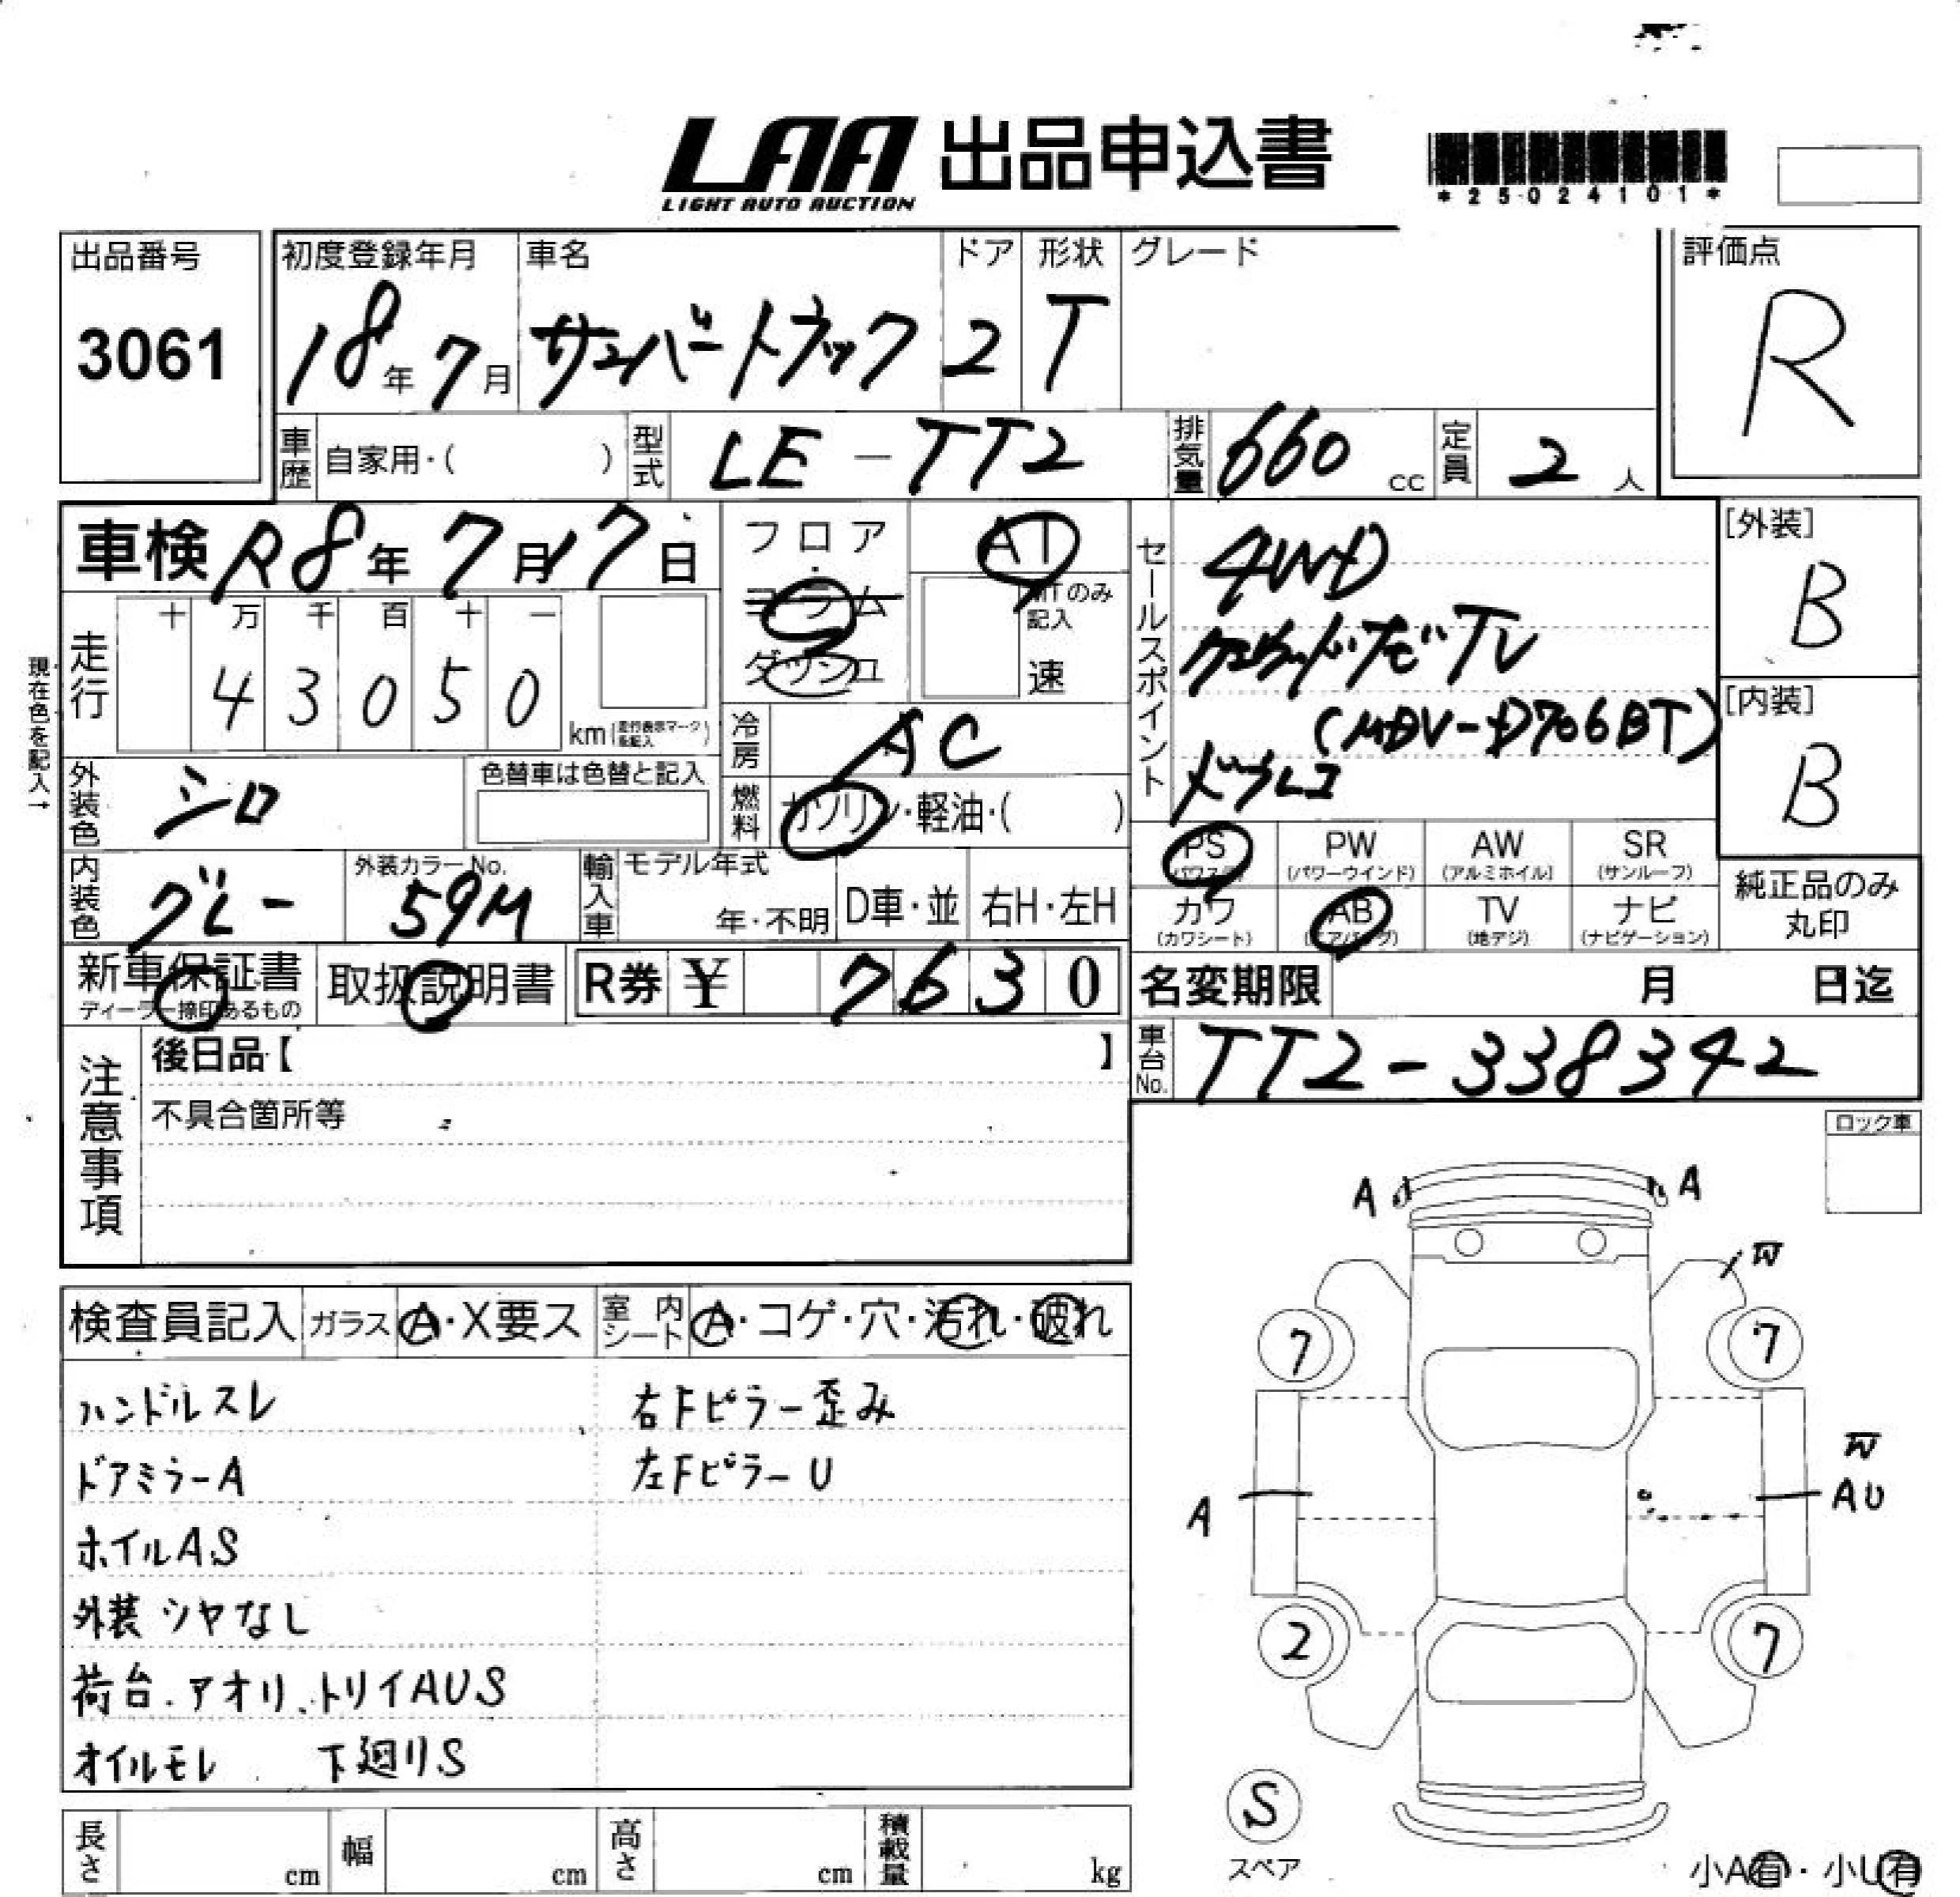 LAA 出品申込書
LIGHT AUTO AUCTION
*25024101*
出品番号
3061
初度登録年月
18年7月
車名
サンバートラック
ドア
2
形状
T
グレード
評価点
R
車歴 自家用・( )
型式 LE-TT2
排気量 660 cc
定員 2 人
車検 R8年7月17日
フロア
コラム
ダッシュ
AT
MTのみ記入
速
セールスポイント
4WD
ケンウッドナビTV
(MDV-D706BT)
ドラレコ
[外装]
B
[内装]
B
現在色を記入→
走行
十 万 千 百 十 一
4 3 0 5 0
km(走行表示マークを記入)
冷房 AC
燃料 ガソリン・軽油・( )
外装色 シロ
色替車は色替と記入
内装色 グレー
外装カラーNo.
59M
輸入車
モデル年式
年・不明
D車・並
右H・左H
PS
(パワステ)
PW
(パワーウインド)
AW
(アルミホイル)
SR
(サンルーフ)
カワ
(カワシート)
AB
(エアバッグ)
TV
(地デジ)
ナビ
(ナビゲーション)
純正品のみ
丸印
新車保証書
ディーラー捺印あるもの
取扱説明書
R券 ¥ 7630
名変期限 月 日迄
車台No. TT2-338342
注意事項
後日品【 】
不具合箇所等
ロック車
検査員記入
ガラス A・X要ス
室内シート A・コゲ・穴・汚れ・破れ
ハンドルスレ
右Fピラー歪み
ドアミラーA
左FピラーU
ホイルAS
外装シヤなし
荷台.アオリ、トリイAUS
オイルモレ 下廻りS
A A
W
7 7
W
A AU
2 7
S
スペア
小A有・小U有
長さ cm
幅 cm
高さ cm
積載量 kg